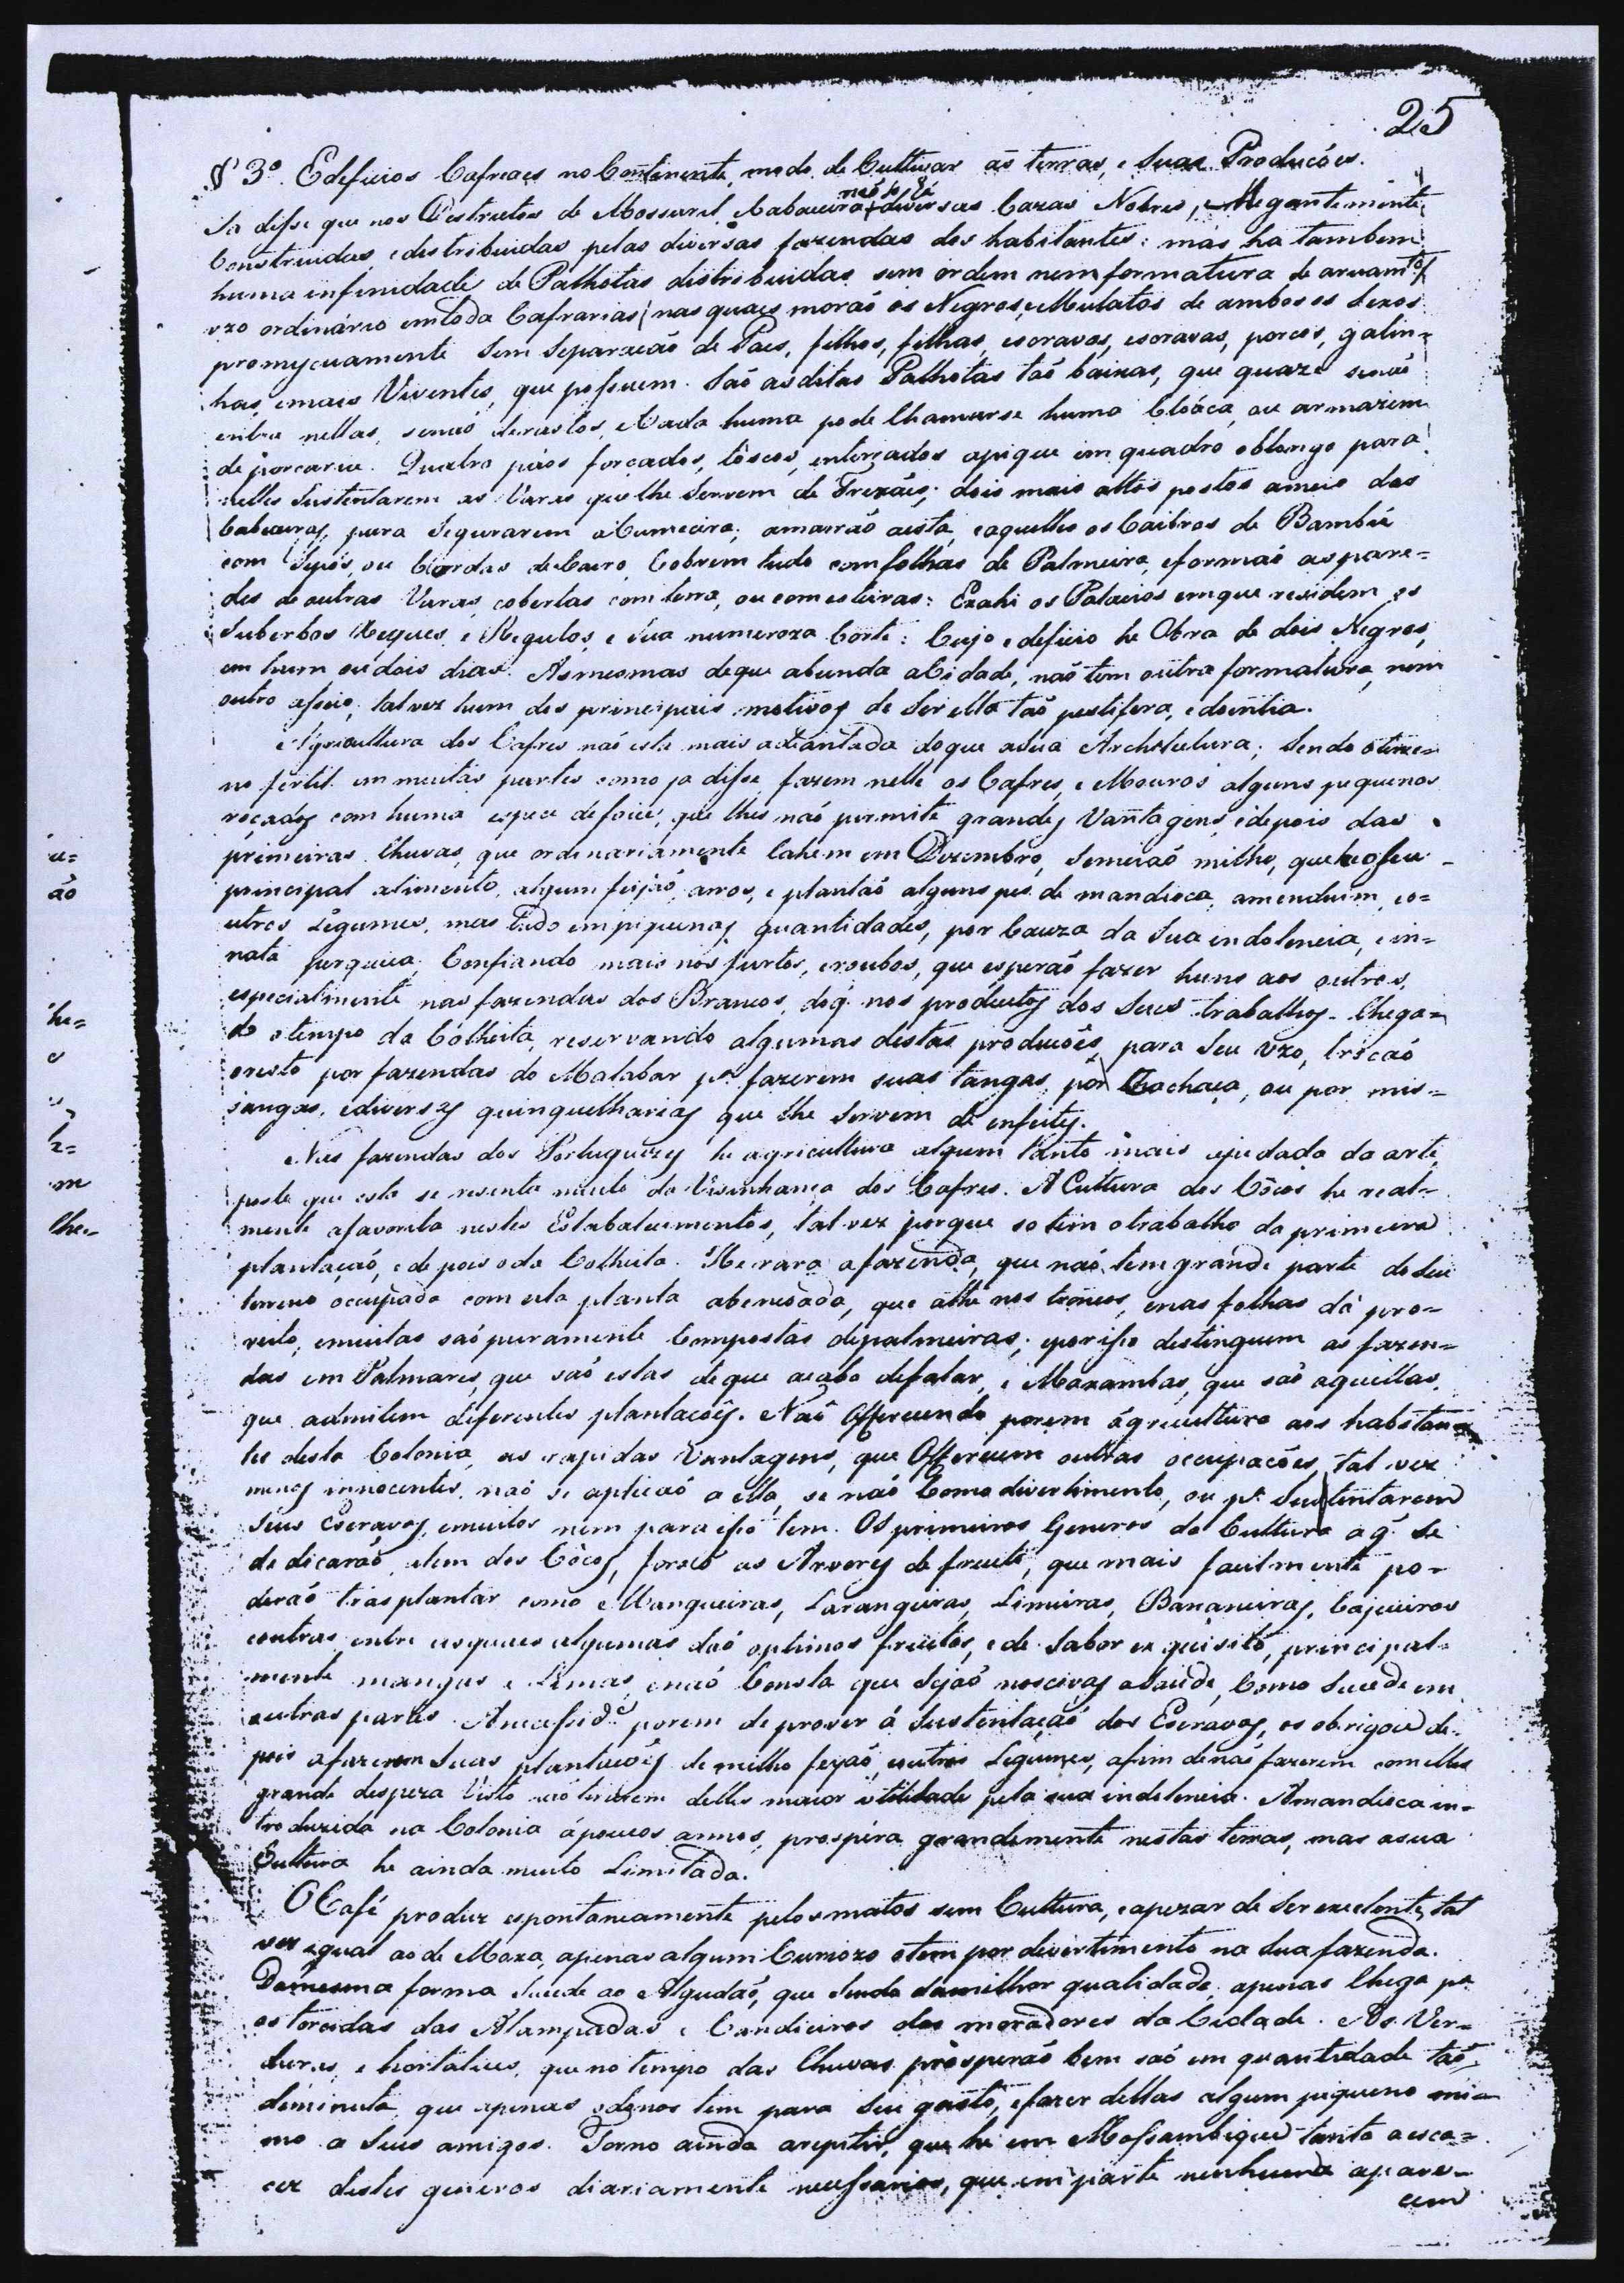 25
§ 3º Edeficios Cafreaes no Continente, modo de Cultivar as terras, e Suas Producões.
Ja disse que nos Destrictos de Mossuril, e Cabaceira não só há diversas Cazas Nobres, e elegantemente
Construidas, e distribuidas pelas diversas fazendas dos habitantes: mas ha tambem
huma infinidade de Palhotas distribuidas sem ordem nem formatura de aruamtº (
vzo ordinário em toda Cafraria) nas quaes moraõ os Negros, e Mulatos de ambos os Sexos
promyscuamente Sem Separaçaõ de Paes, filhos, filhas, escravos, escravas, porcos, galin=
has, e mais Viventes, que possuem. Saõ as ditas Palhotas taõ baixas, que quaze se naõ
entra nellas, senaõ de rastos, e Cada huma pode Chamarse huma Cloáca, ou armazem
de porcaria. Quatro páos forcados, tôscos, enterrados apique em quadro oblongo para
nelles Sustentarem as Varas que lhe Servem de Frexaes; dois mais altos postos ameio das
Cabeceiras, para Segurarem a Cumieira; amarraõ aesta, e aquelles os Caibros de Bambú
com Sipós, ou Cordas de Cairo, Cobrem tudo com folhas de Palmeira, e formaõ as pare=
des de outras Varas, cobertas com terra, ou com esteiras: Exahi os Palacios em que residem os
Suberbos Xeques, e Regulos, e Sua numeroza Corte: Cujo edeficio he Obra de dois Negros,
em hum ou dois dias. As mesmas de que abunda a Cidade, não tem outra formatura, nem
outro asseio, talvez hum dos principais motivos de Ser ella taõ pestifera, e doentia.
A Agricultura dos Cafres naõ esta mais adiantada do que a Sua Architetura; Sendo o terre=
no fertil em muitas partes como ja disse, fazem nelle os Cafres, e Mouros alguns pequenos
roçados com huma especie de foice, que lhes naõ permite grandes Vantagens, e depois das
primeiras Chuvas, que ordinariamente Cahem em Dezembro, Semeiaõ milho, que he o seu
principal alimento, algum feijaõ, arros, e plantaõ alguns pes de mandioca, amenduim, e o=
utros Legumes, mas tudo em piquenas quantidades, por Cauza da Sua indolencia, e in=
nata perguiça. Confiando mais nos furtos, e roubos, que esperaõ fazer huns aos outros,
especialmente nas fazendas dos Brancos, doq. nos productos dos Seus trabalhos. Chega=
do o tempo da Côlheita, reservando algumas déstas producões para Seu vzo, trocaõ
o resto por fazendas do Malabar pª. fazerem suas tangas, por Cachaça, ou por mis=
sangas, e diversas quinquelharias que lhe Servem de enfeites.
Nas fazendas dos Portuguezes he agricultura algum tanto mais ajudada da arte,
posto que esta se resente muito da Visinhança dos Cafres. A Cultura dos Côcos he real=
mente a favorita nestes Estabalecimentos, tal vez porque so tem o trabalho da primeira
plantaçaõ, e depois o da Colheita. He rara a fazenda, que naõ tem grande parte do Seu
terreno occupado com esta planta abensoada, que athé nos troncos, e nas folhas dá pro=
veito, e muitas saõ puramente Compostas de palmeiras; e por isso distinguem as fazen=
das em Palmares, que saõ estas de que acabo de falar, e Maxambas, que saõ aquellas,
que admitem diferentes plantacoes. Naõ Offerecendo porem ágricultura aos habitan=
tes desta Colonia, as rapidas Vantagens, que Offerecem outras occupacões, tal vez
menos innocentes, naõ se aplicaõ a ella, se naõ Como divertimento, ou pª Sustentarem
Seus Escravos, e muitos nem para isso tem. Os primeiros Generos de Cultura aq. Se
dedicaraõ, alem dos Côcos, foraõ as Arvores de fruita, que mais facilmente po=
deraõ trasplantar como Mangueiras, Larangeiras, Limeiras, Bananeiras, Cajueiros
e outras, entre as quaes algumas daõ optimos frutos, e de Sabor exquisito, principal=
mente mangas, e Limas, e naõ Consta que Sejaõ noscivas a Saude, Como Sucede em
outras partes. A necessidᵉ porem de prover á Sustentaçaõ dos Escravos, os obrigou de=
pois a fazerem Suas plantacoes de milho feijaõ, e outros Legumes, afim de naõ fazerem com elles
grande despeza Visto naõ tirarem delles maior utilidade pela sua indolencia. A mandioca in=
troduzida na Colonia á poucos annos, prospera grandemente nestas terras, mas a sua
Cultura he ainda muito Limitada.
O Café produz espontaneamente pelos matos sem Cultura, e apezar de Ser excelente, tal
vez egual ao de Moxa, apenas algum Curiozo o tem por divertimento na Sua fazenda.
Da mesma forma Sucede ao Algudaõ, que Sendo da milhor qualidade, apenas Chega pª
as torcidas das Alampadas, e Candieiros dos moradores da Cidade. As Ver=
duras, e hortalices, que no tempo das Chuvas prosperaõ bem saõ em quantidade taõ
diminuta, que apenas o donos tem para Seu gasto, e fazer dellas algum piqueno mi=
mo a Seus amigos. Torno ainda arepitir, que he em Mossambique tanta a esca=
cez destes generos diariamente necessarios, que em parte nenhuma apare=
cem
u=
ão
he=
o
h=
m
lhe=